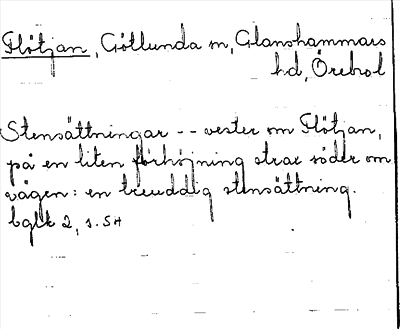 Flötjan, Götlunda sn, Glanshammars
hd, Örebrol
Stensättningar -- vester om Flötjan,
på en liten förhöjning strax söder om
vägen: en treuddig stensättning.
bglt 2, s. 54